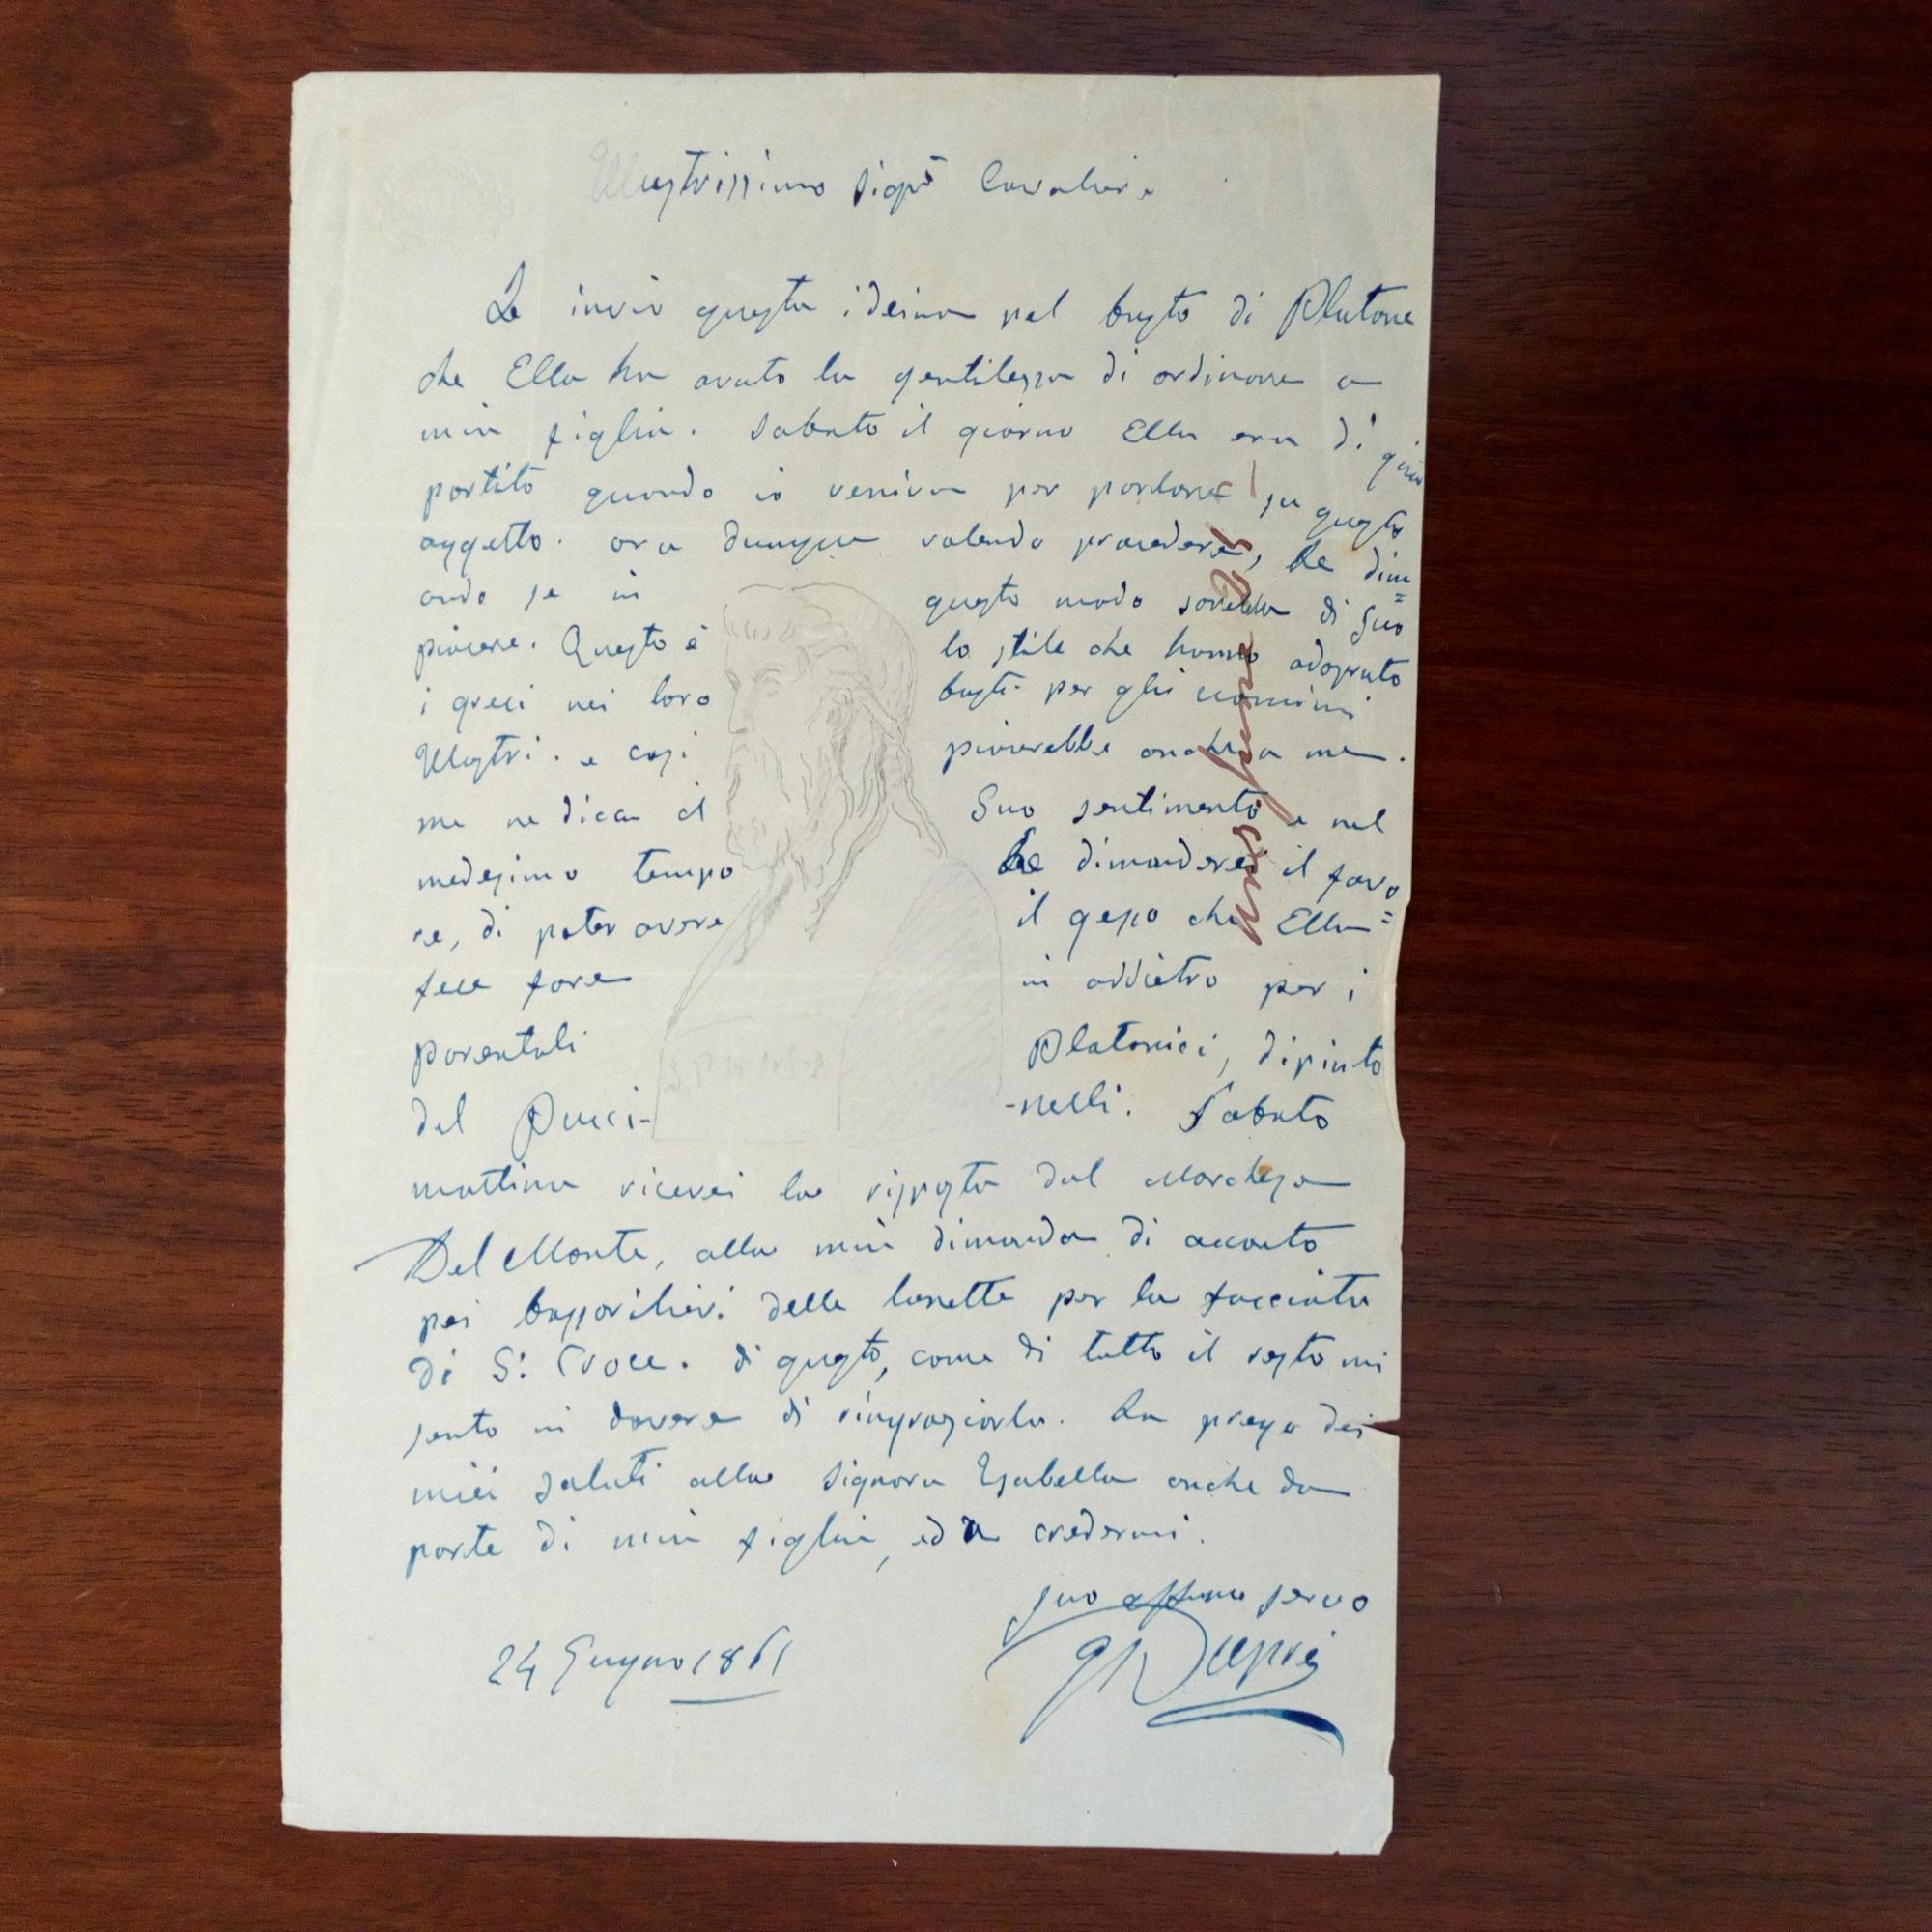 Illustrissimo Sigre Cavaliere
Le invio questa ideina pel busto di Platone
che Ella ha avuto la gentilezza di ordinare a
mia figlia. Sabato il giorno Ella era di già
partito quando io veniva per parlare su questo
oggetto. ora dunque volendo procedere, Le dim=
ando se in questo modo sarebbe di Suo
piacere. Questo è lo stile che hanno adoprato
i greci nei loro busti per gli uomini
illustri. e così piacerebbe anche a me.
me ne dica il Suo sentimento e nel
medesimo tempo Le dimanderei il favo=
re, di poter avere il gesso che Ella
fece fare in addietro per i
parentali Platonici, dipinto
dal Pucci-nelli. Sabato
mattina ricevei la risposta dal Marchese
Del Monte, alla mia dimanda di acconto
pei bassorilievi delle lunette per la facciata
di S: Croce. di questo, come di tutto il resto mi
sento in dovere di ringraziarla. La prego dei
miei saluti alla Signora Isabella anche da
parte di mia figlia, ed a credermi.
suo affmo servo
GDuprè
24 Giugno 1861